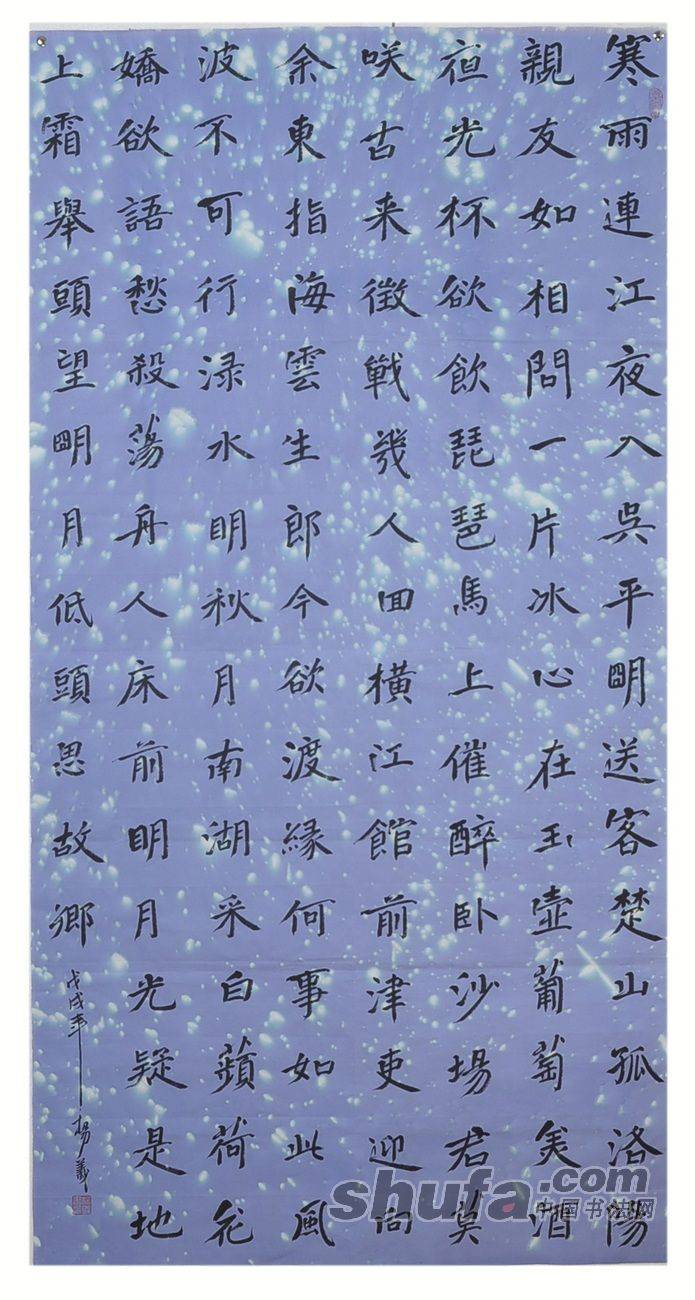 寒雨連江夜入吳平明送客楚山孤洛陽
親友如相問一片冰心在玉壺葡萄美酒
夜光杯欲飲琵琶馬上催醉卧沙場君莫
咲古来徵戰幾人回橫江館前津吏迎向
余東指海雲生郎今欲渡緣何事如此風
波不可行渌水明秋月南湖采白蘋荷花
嬌欲語愁殺蕩舟人床前明月光疑是地
上霜舉頭望明月低頭思故鄉
戊戌年 楊義
shufa.com
中国书法网